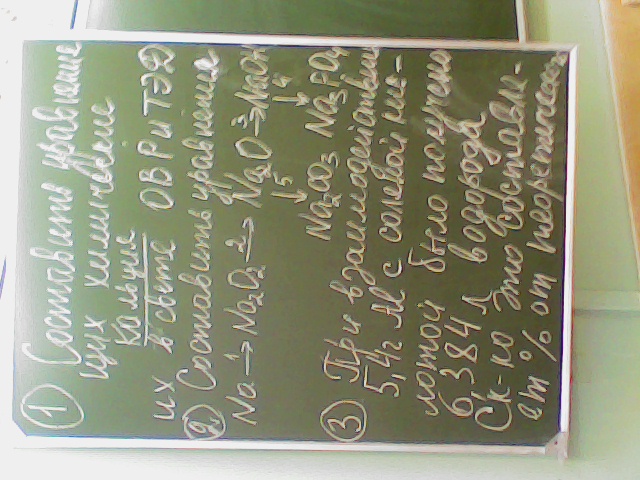 ① Составить уравнение
щих химические
кальция
их в свете ОВР и ТЭД
② Составить уравнения
Na 1→ Na2O2 2→ Na2O 3→ NaOH
↓5 ↓4
Na2CO3 Na3PO4
③ При взаимодействии
5,4г Al с соляной кис-
лотой было получено
6,384 л водорода
Ск-ко это составля-
ет % от теоретическ